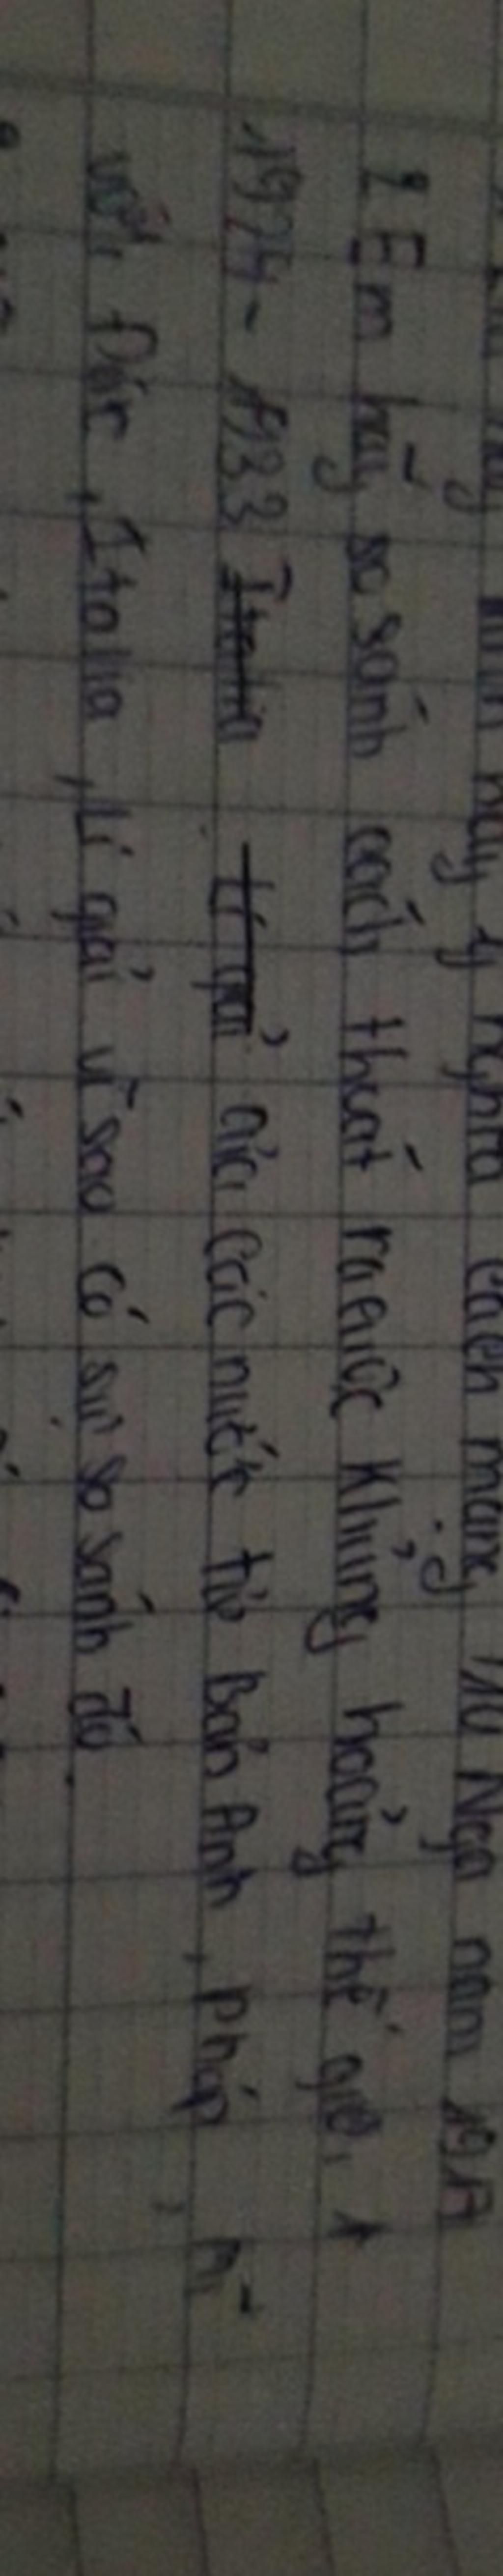 nay ý nghĩa cách mạng Nga năm 19
2 Em hãy so sánh cách thoát ra cuộc khủng hoảng thế giới
- 1933 của các nước tư Bản Anh, Pháp,
với Đức, Italia, Lí giải vì sao có sự so sánh đó.